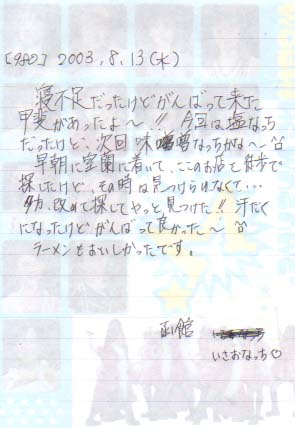 [980] 2003. 8. 13(水)
寝不足だったけどがんばって来た
甲斐があったよ〜!! 今回は塩なっち
だったけど、次回 味噌なっちかな〜
早朝に室蘭に着いて、ここのお店を徒歩で
探したけど、その時は見つけられなくて…
夕方、改めて探してやっと見つけた!! 汗だく
になったけどがんばって良かった〜
ラーメンもおいしかったです。
函館
いさおなっち♡